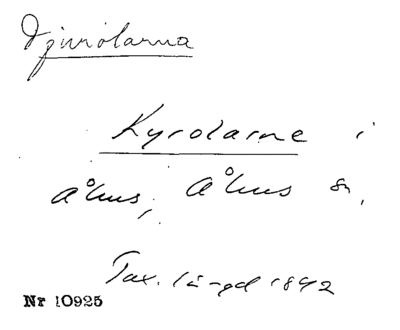 Djurölarna
Kyrolarne i
Åhus, Åhus sn,
Tax. längd 1892
Nr 10925